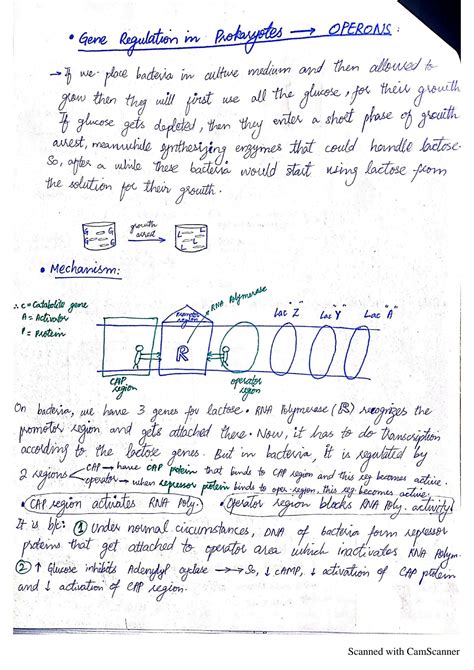 • Gene Regulation in Prokaryotes → OPERONS:
→ If we place bacteria in culture medium and then allowed to
grow then they will first use all the glucose, for their growth
If glucose gets depleted, then they enter a short phase of growth
arrest, meanwhile synthesizing enzymes that could handle lactose.
So, after a while these bacteria would start using lactose from
the solution for their growth.
G G G G growth arrest → L L L
• Mechanism:
∴ C = Catabolite gene
A = Activator
P = Protein
promotor region
R
RNA Polymerase
Lac "Z" Lac "Y" Lac "A"
CAP region
operator region
On bacteria, we have 3 genes for lactose. RNA Polymerase (R) recognizes the
promotor region and gets attached there. Now, it has to do Transcription
according to the lactose genes. But in bacteria, it is regulated by
2 regions
CAP → have CAP protein that binds to CAP region and this reg becomes active.
operator → when repressor protein binds to oper. region, this reg becomes active.
• CAP region activates RNA Poly. • Operator region blocks RNA Poly. activity
It is b/c: ① Under normal circumstances, DNA of bacteria form repressor
proteins that get attached to operator area which inactivates RNA Polym.
② ↑ Glucose inhibits Adenylyl cyclase →→ So, ↓ cAMP, ↓ activation of CAP protein
and ↓ activation of CAP region.
Scanned with CamScanner